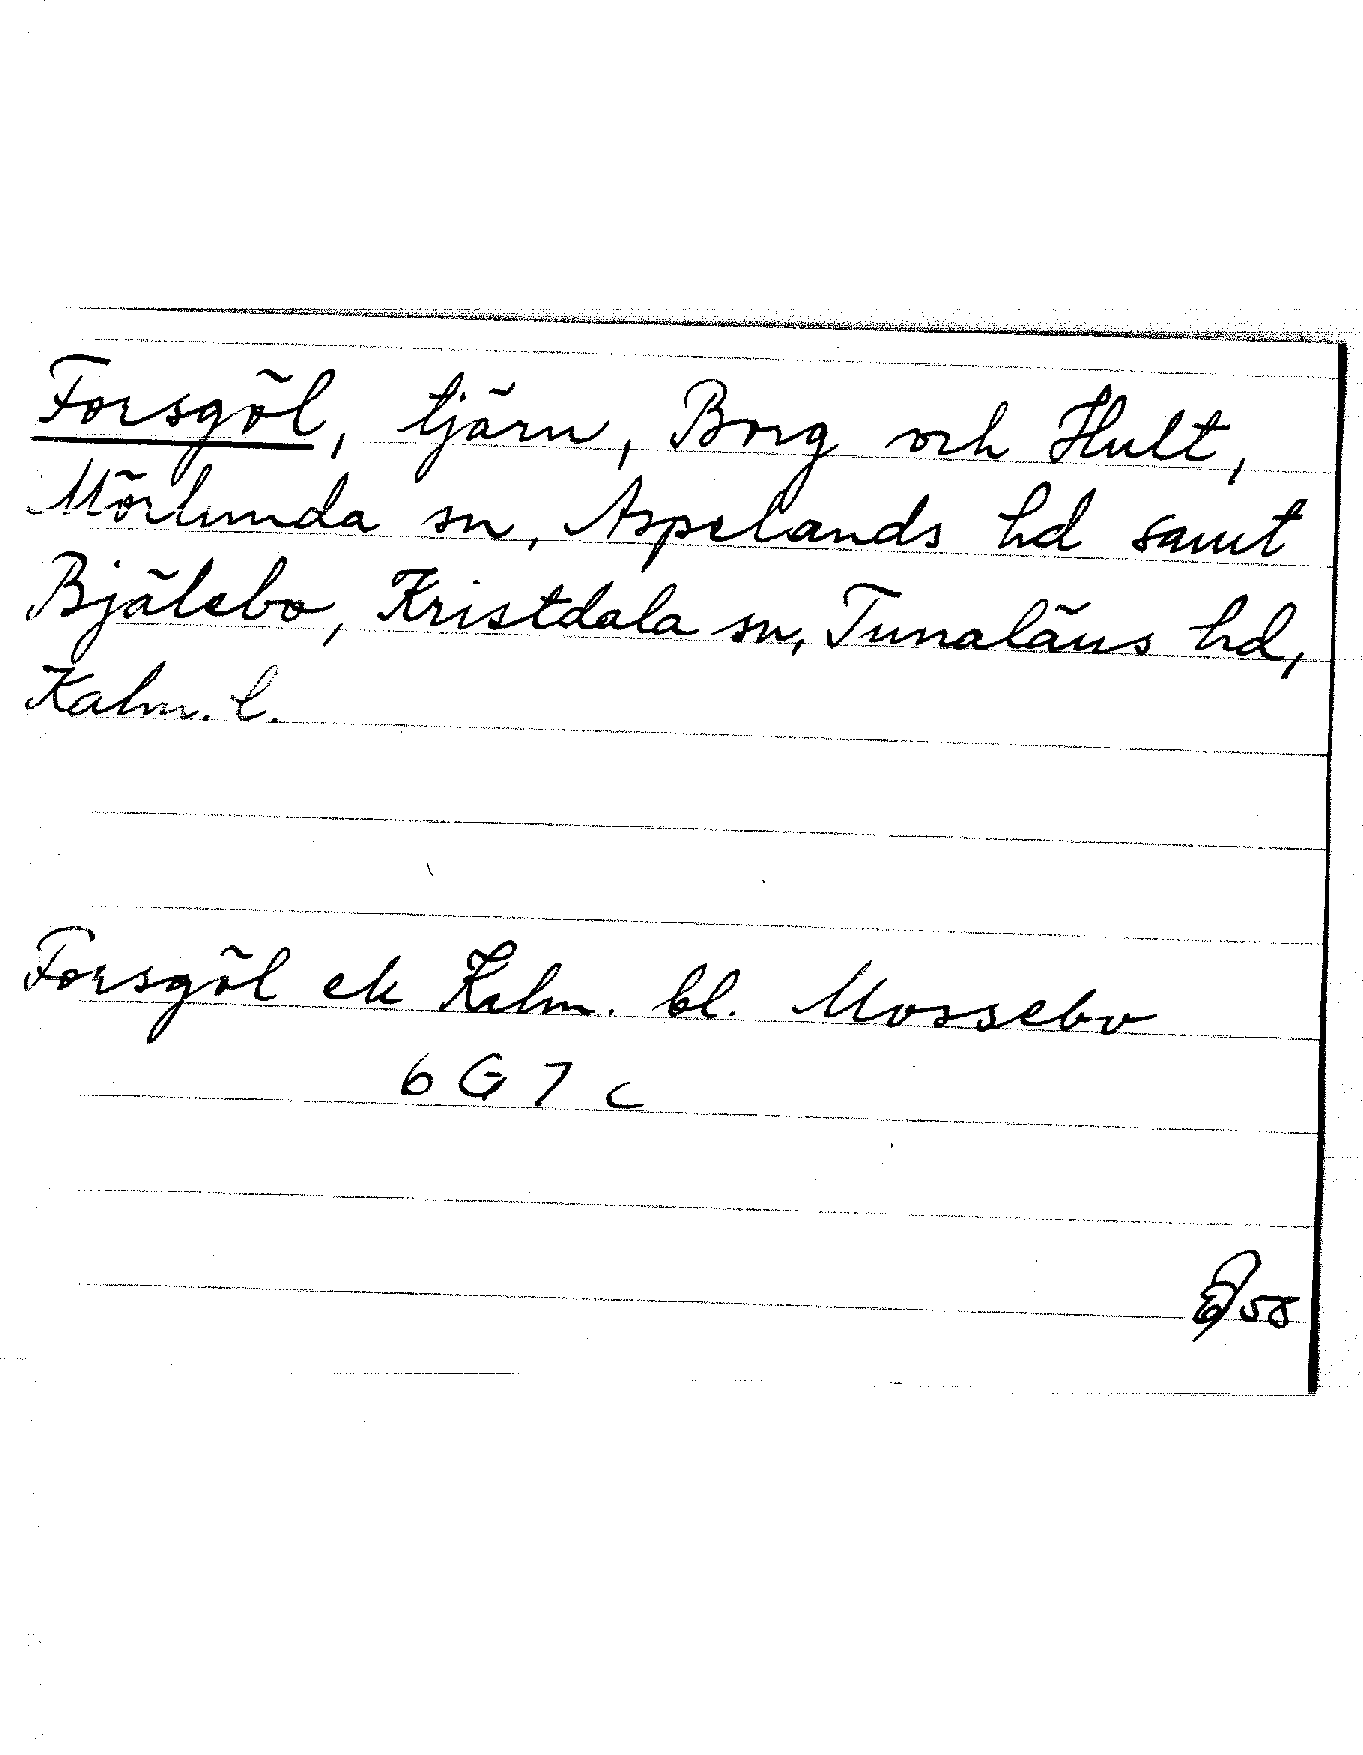 Forsgöl, tjärn, Borg och Hult,
Mörlunda sn, Aspelands hd samt
Bjälebo, Kristdala sn, Tunaläns hd,
Kalm. l.
Forsgöl ek Kalm. bl. Mossebo
6 G 7 c
58